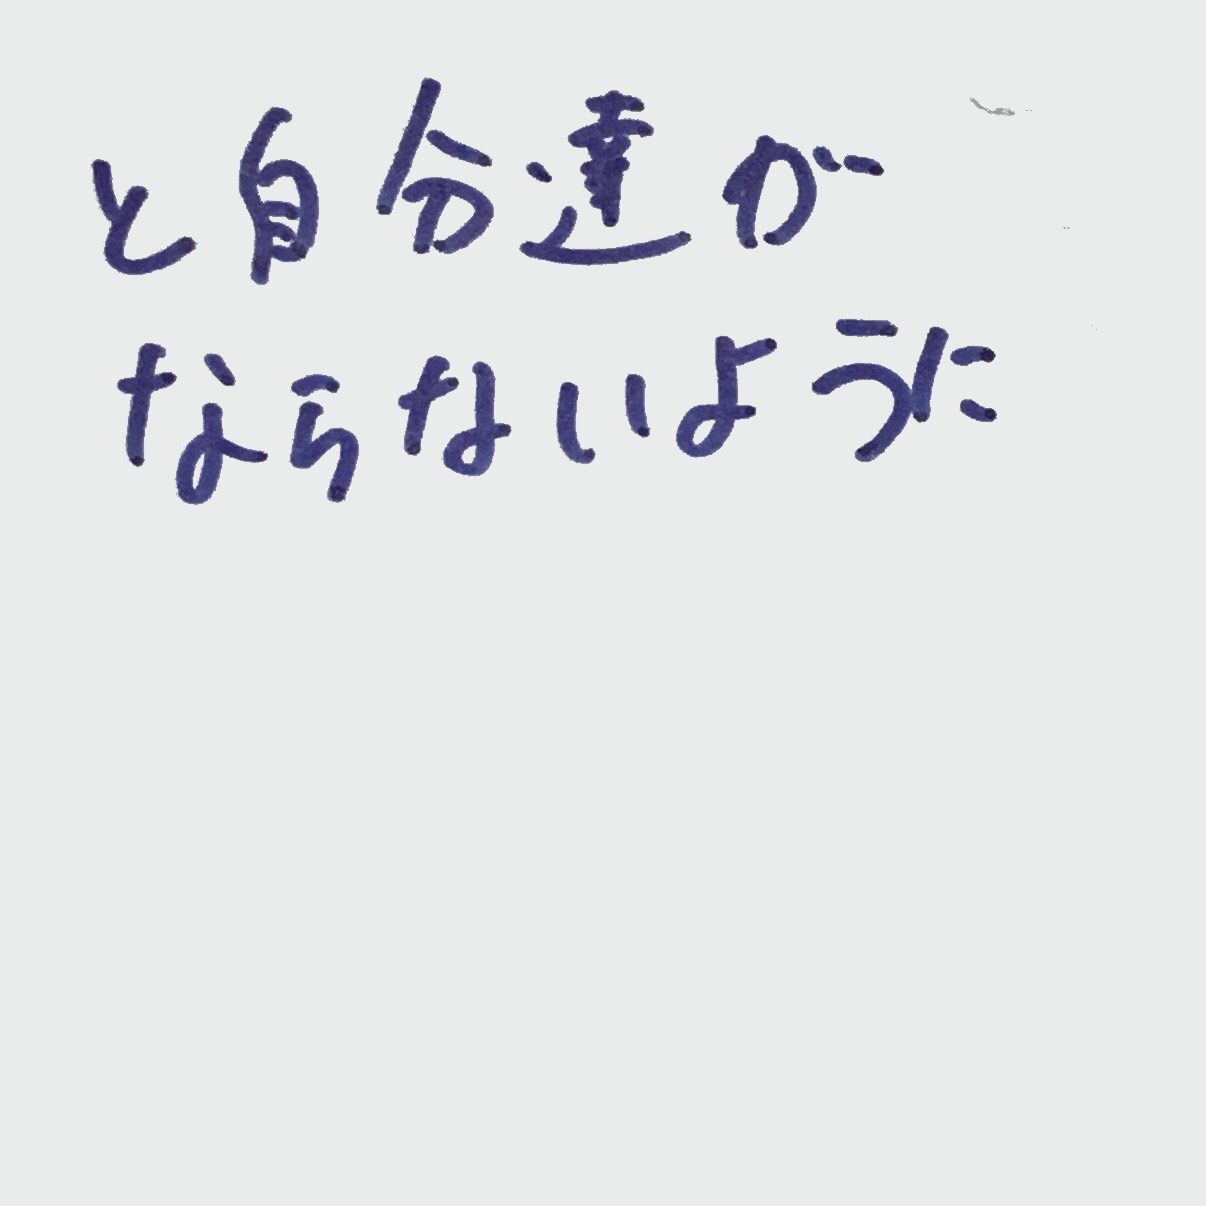 と自分達が
ならないように